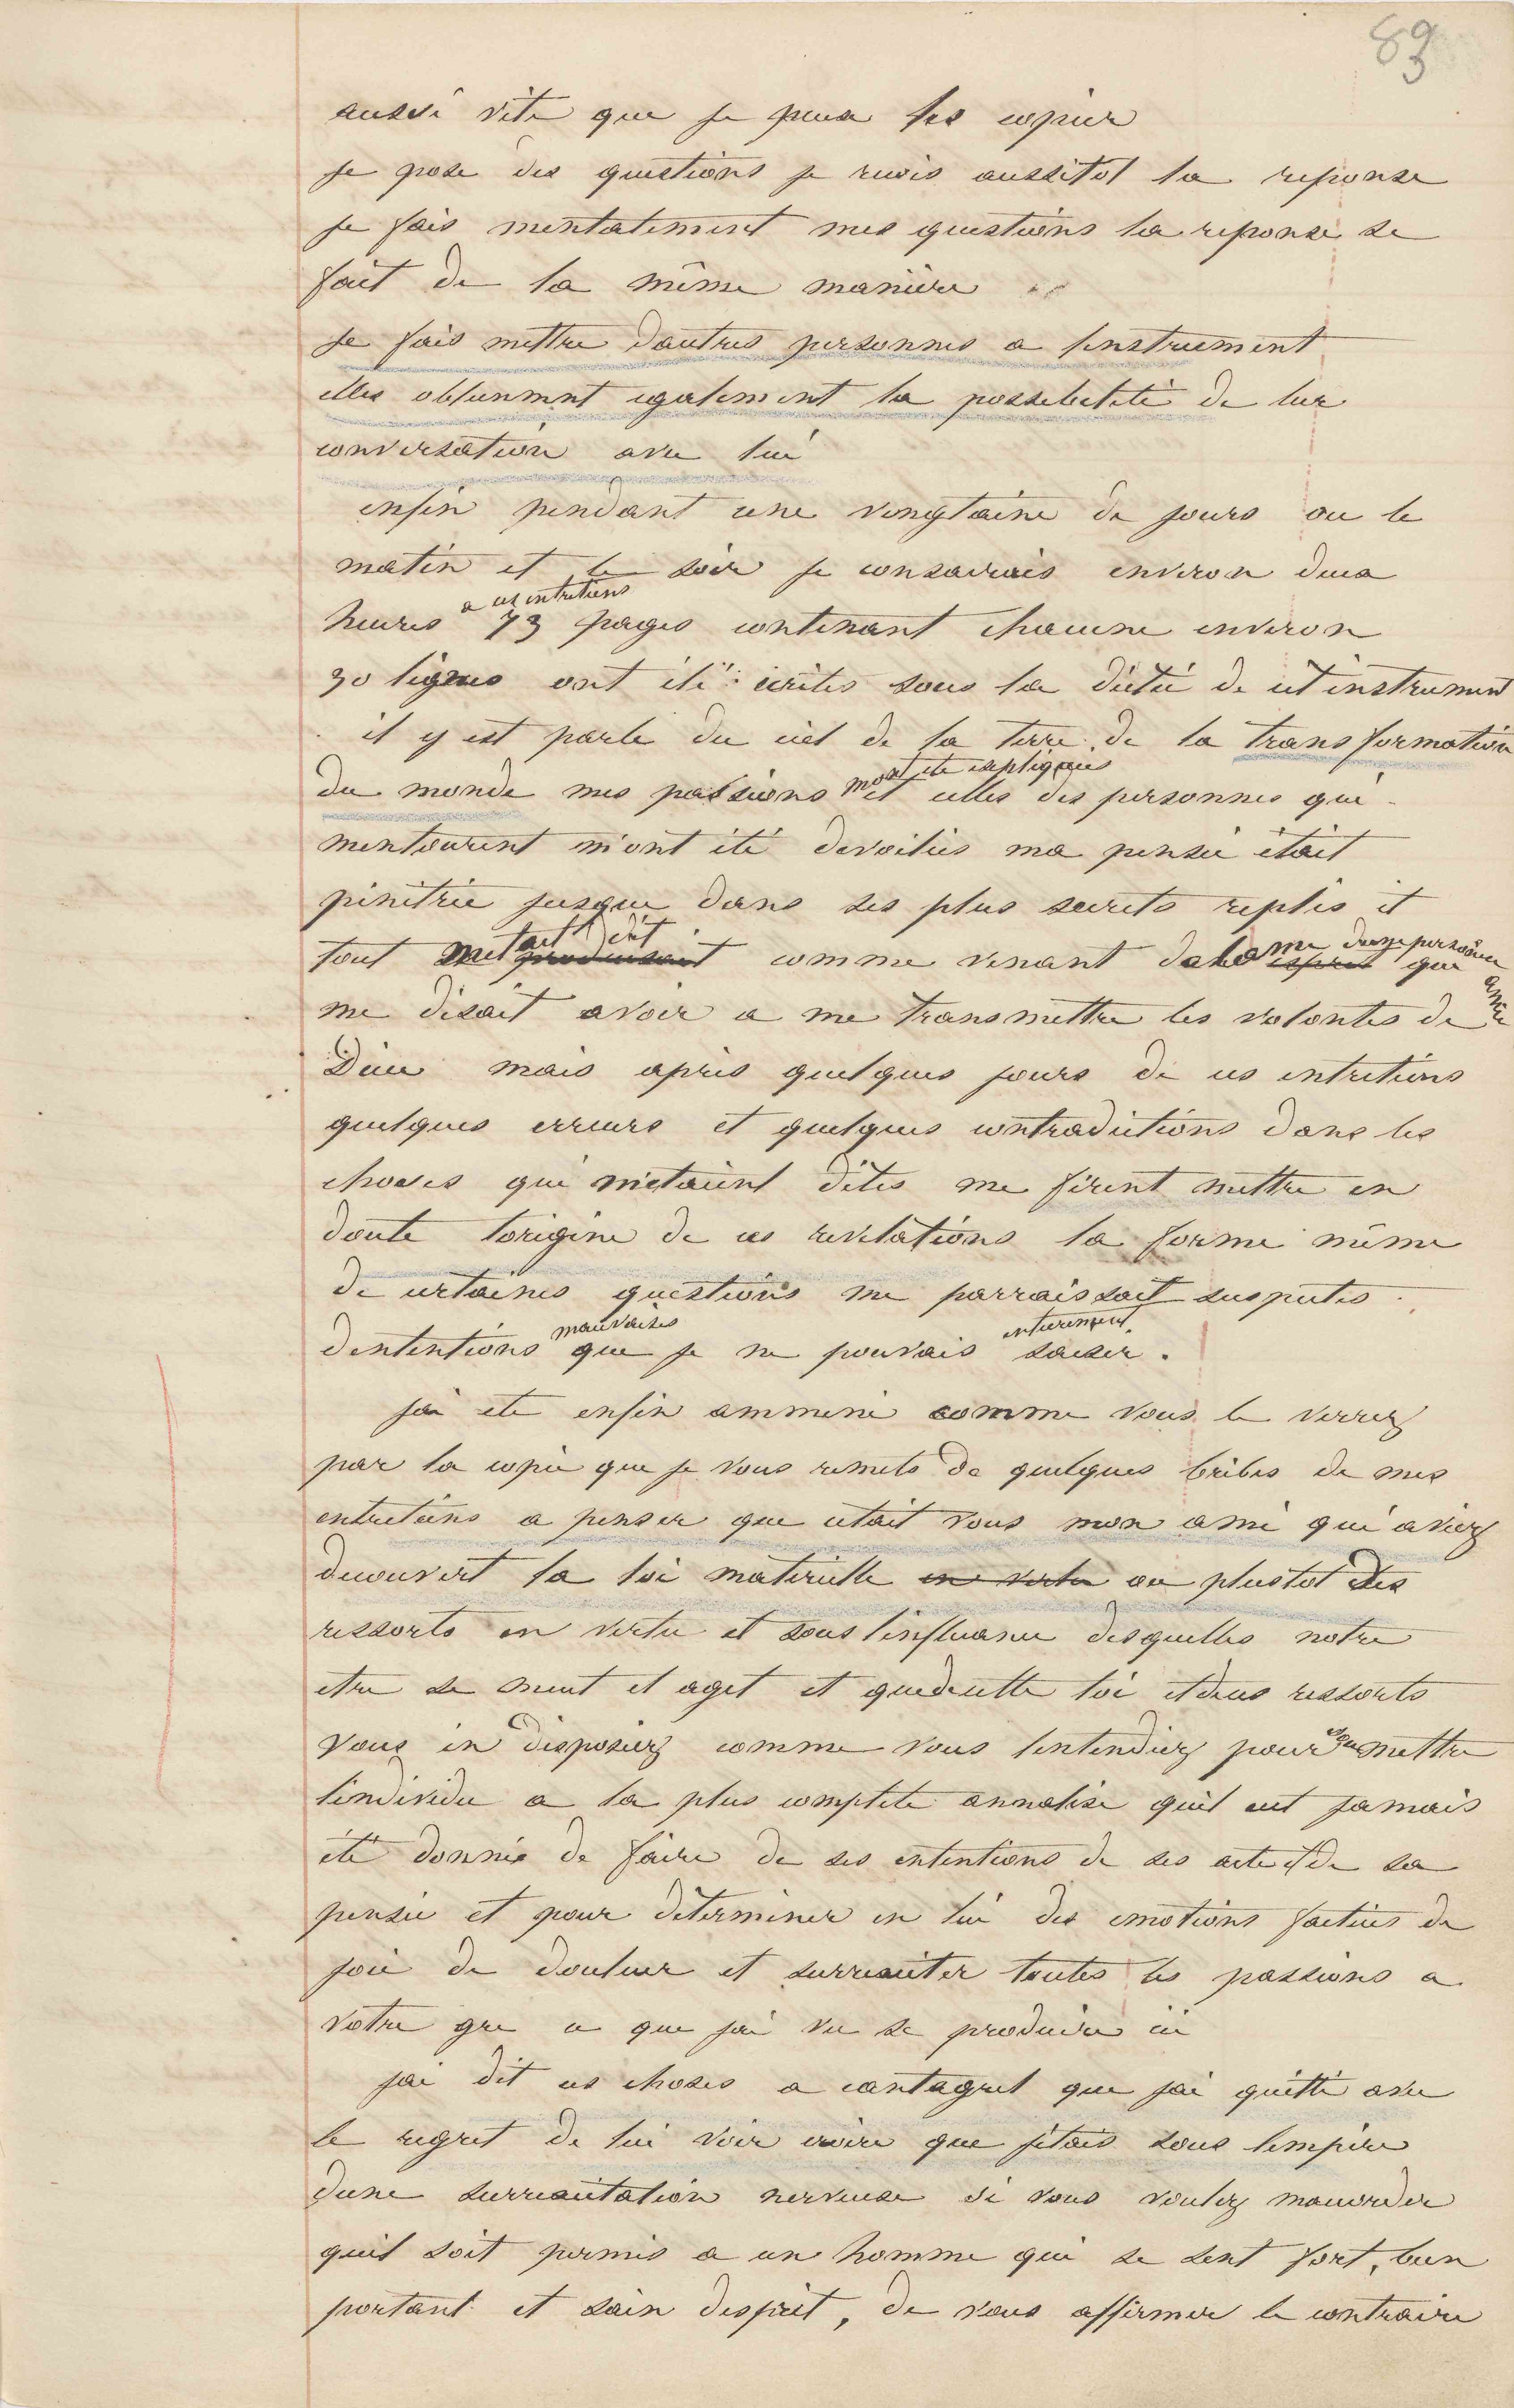 83
aussi vite que je peux les copier
je pose des questions je recois aussitot la reponse
je fais mentalement mes questions la reponse se
fait de la même maniere
je fais mettre dautres personnes a linstrument
elles obtiennent egalement la possibilité de lur
conversation avec lui
enfin pendant une vingtaine de jours ou le
matin et le soir je consacrais environ deux
heures a ces entretiens 73 pages contenant chacune environ
30 lignes ont été écrites sous la dictée de cet instrument
il y est parlé du ciel de la terre de la transformation
du monde mes passions mont ete expliquées et celles des personnes qui
mentourent m'ont été devoilées ma pensée était
penétrée jusque dans ses plus secrets replis et
tout metait dit comme venant de lame dune personne amie que
me disait avoir a me transmettre les volontes de
Dieu mais après quelques jours de ces entretiens
quelques erreurs et quelques contradictions dans les
choses qui m'etaient dites me firent mettre en
doute lorigine de ces revelations la forme même
de certaines questions me parraissait suspectes
dintentions mauvaises que je ne pouvais entierement saisir.
jai ete enfin ammené comme vous le verrez
par la copie que je vous remets de quelques bribes de mes
entretiens a penser que cétait vous mon ami qui aviez
decouvert la loi materielle en vertu ou plustot des
ressorts en vertu et sous linfluance desquelles notre
etre se meut et agit et que de cette loi et de ces ressorts
vous en disposiez comme vous lentendiez pour soumettre
lindividu a la plus complete annalise quil eut jamais
été donnée de faire de ses intentions de ses actes et de sa
pensée et pour déterminer en lui des emotions factices de
joie de douleur et surrexciter toutes les passions a
votre gre ce que jai vu se produire ici
jai dit ces choses a cantagrel que jai quitté avec
le regret de lui voir croire que jétais sous lempire
dune surrexcitation nerveuse si vous voulez maccorder
quil soit permis a un homme qui se sent fort, bien
portant et sain desprit, de vous affirmer le contraire